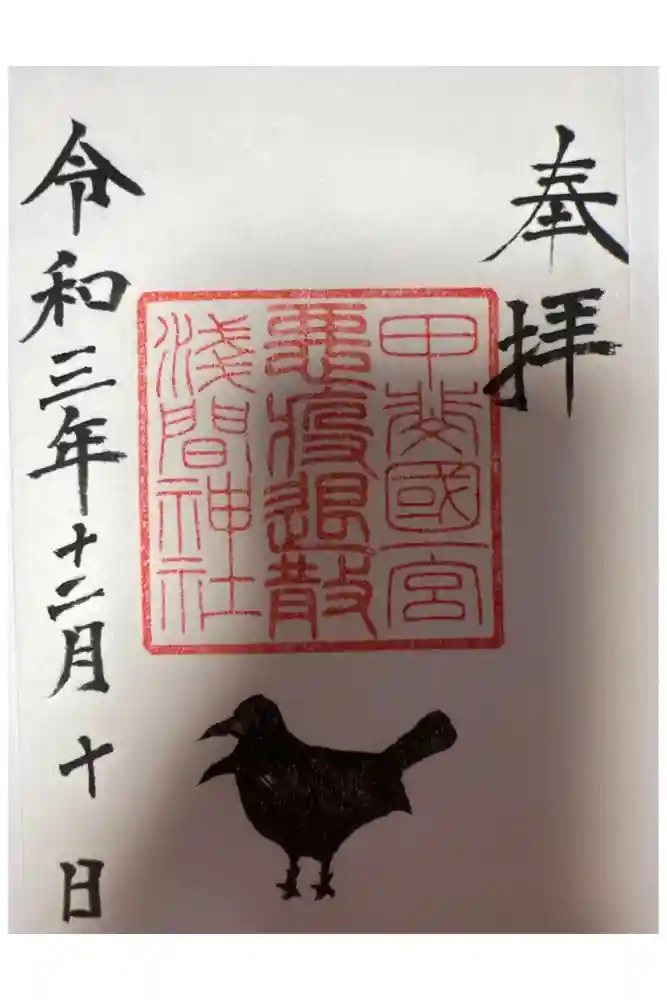 奉拝
甲斐國宮
悪疫退散
浅間神社
令和三年十二月十日